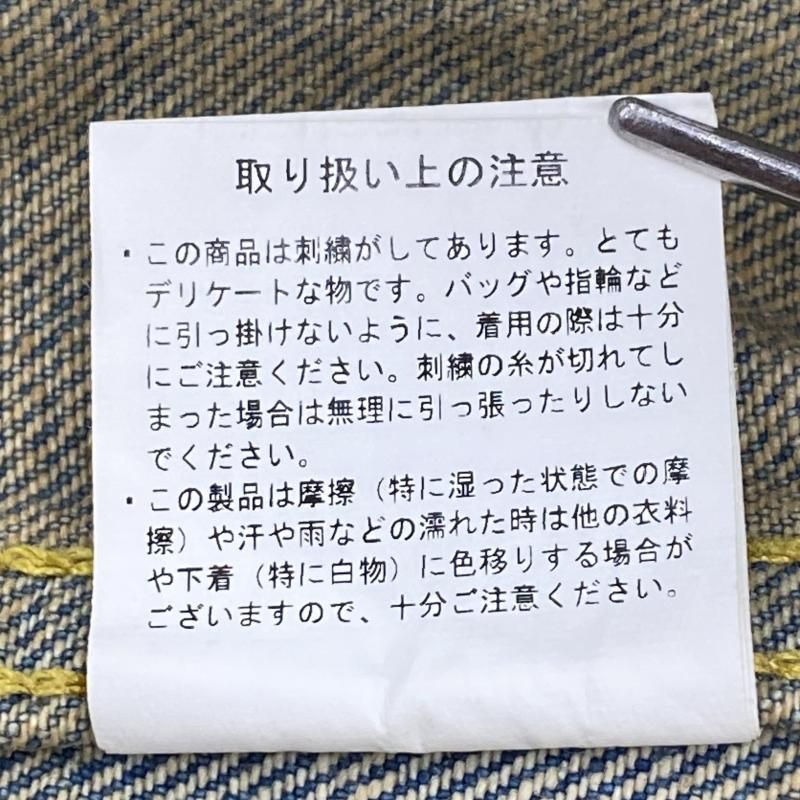 取り扱い上の注意
・この商品は刺繍がしてあります。とても
デリケートな物です。バッグや指輪など
に引っ掛けないように、着用の際は十分
にご注意ください。刺繍の糸が切れてし
まった場合は無理に引っ張ったりしない
でください。
・この製品は摩擦（特に湿った状態での摩
擦）や汗や雨などの濡れた時は他の衣料
や下着（特に白物）に色移りする場合が
ございますので、十分ご注意ください。